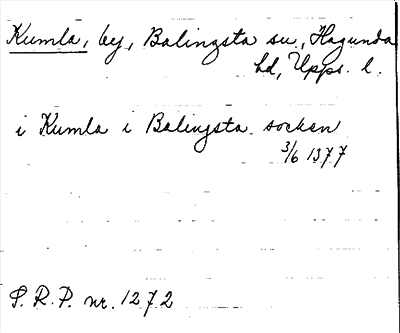 Kumla, by, Balingsta sn, Hagunda
hd, Upps. l.
i Kumla i Balingsta socken
3/6 1377
S. R. P. nr. 1272